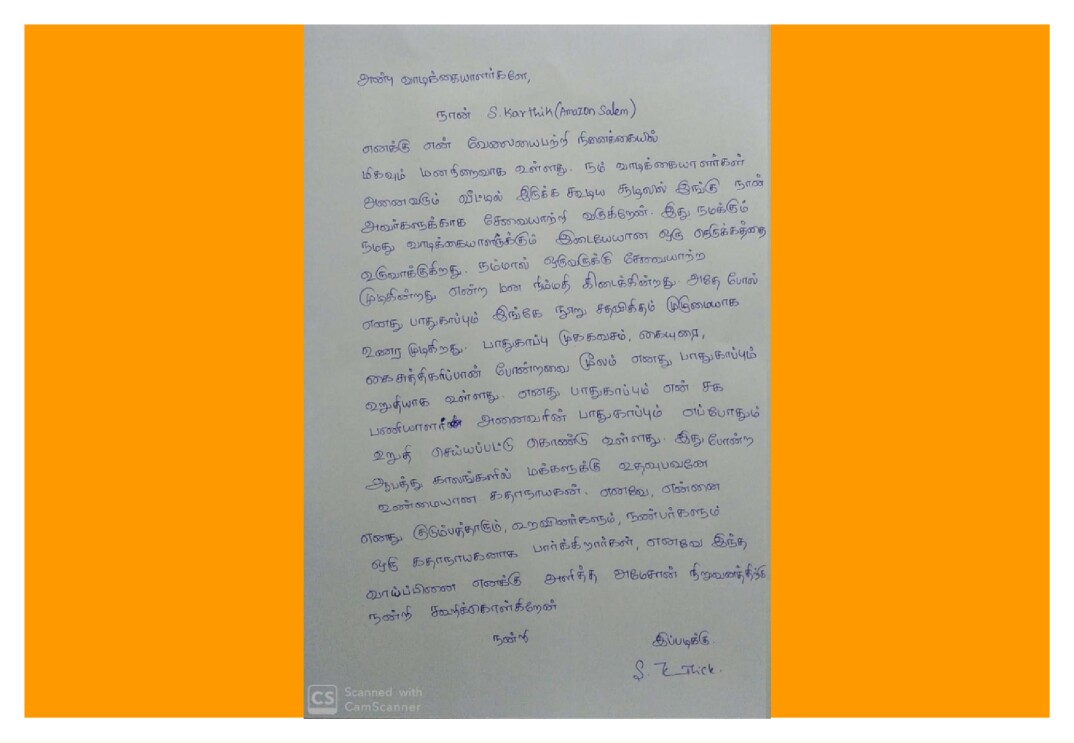 அன்பு வாடிக்கையாளர்களே,
நான் S.Karthik(Amazon Salem)
எனக்கு என் வேலையைபற்றி நினைக்கையில்
மிகவும் மனநிறைவாக உள்ளது. நம் வாடிக்கையாளர்கள்
அனைவரும் வீட்டில் இருக்க கூடிய சூழலில் இங்கு நான்
அவர்களுக்காக சேவையாற்றி வருகிறேன். இது நமக்கும்
நமது வாடிக்கையாளருக்கும் இடையேயான ஒரு நெருக்கத்தை
உருவாக்குகிறது. நம்மால் ஒருவருக்கு சேவையாற்ற
முடிகின்றது என்ற மன நிம்மதி கிடைக்கின்றது. அதே போல்
எனது பாதுகாப்பும் இங்கே நூறு சதவிகிதம் முழுமையாக
உணர முடிகிறது. பாதுகாப்பு முககவசம், கையுறை,
கை சுத்திகரிப்பான் போன்றவை மூலம் எனது பாதுகாப்பும்
உறுதியாக உள்ளது. எனது பாதுகாப்பும் என் சக
பணியாளர்கள் அனைவரின் பாதுகாப்பும் எப்போதும்
உறுதி செய்யப்பட்டு கொண்டு உள்ளது. இது போன்ற
ஆபத்து காலங்களில் மக்களுக்கு உதவுபவனே
உண்மையான கதாநாயகன். எனவே, என்னை
எனது குடும்பத்தாரும், உறவினர்களும், நண்பர்களும்
ஒரு கதாநாயகனாக பார்க்கிறார்கள், எனவே இந்த
வாய்ப்பினை எனக்கு அளித்த அமேசான் நிறுவனத்திற்கு
நன்றி கூறிக்கொள்கிறேன்
நன்றி இப்படிக்கு
S. Karthick.
CS Scanned with
CamScanner